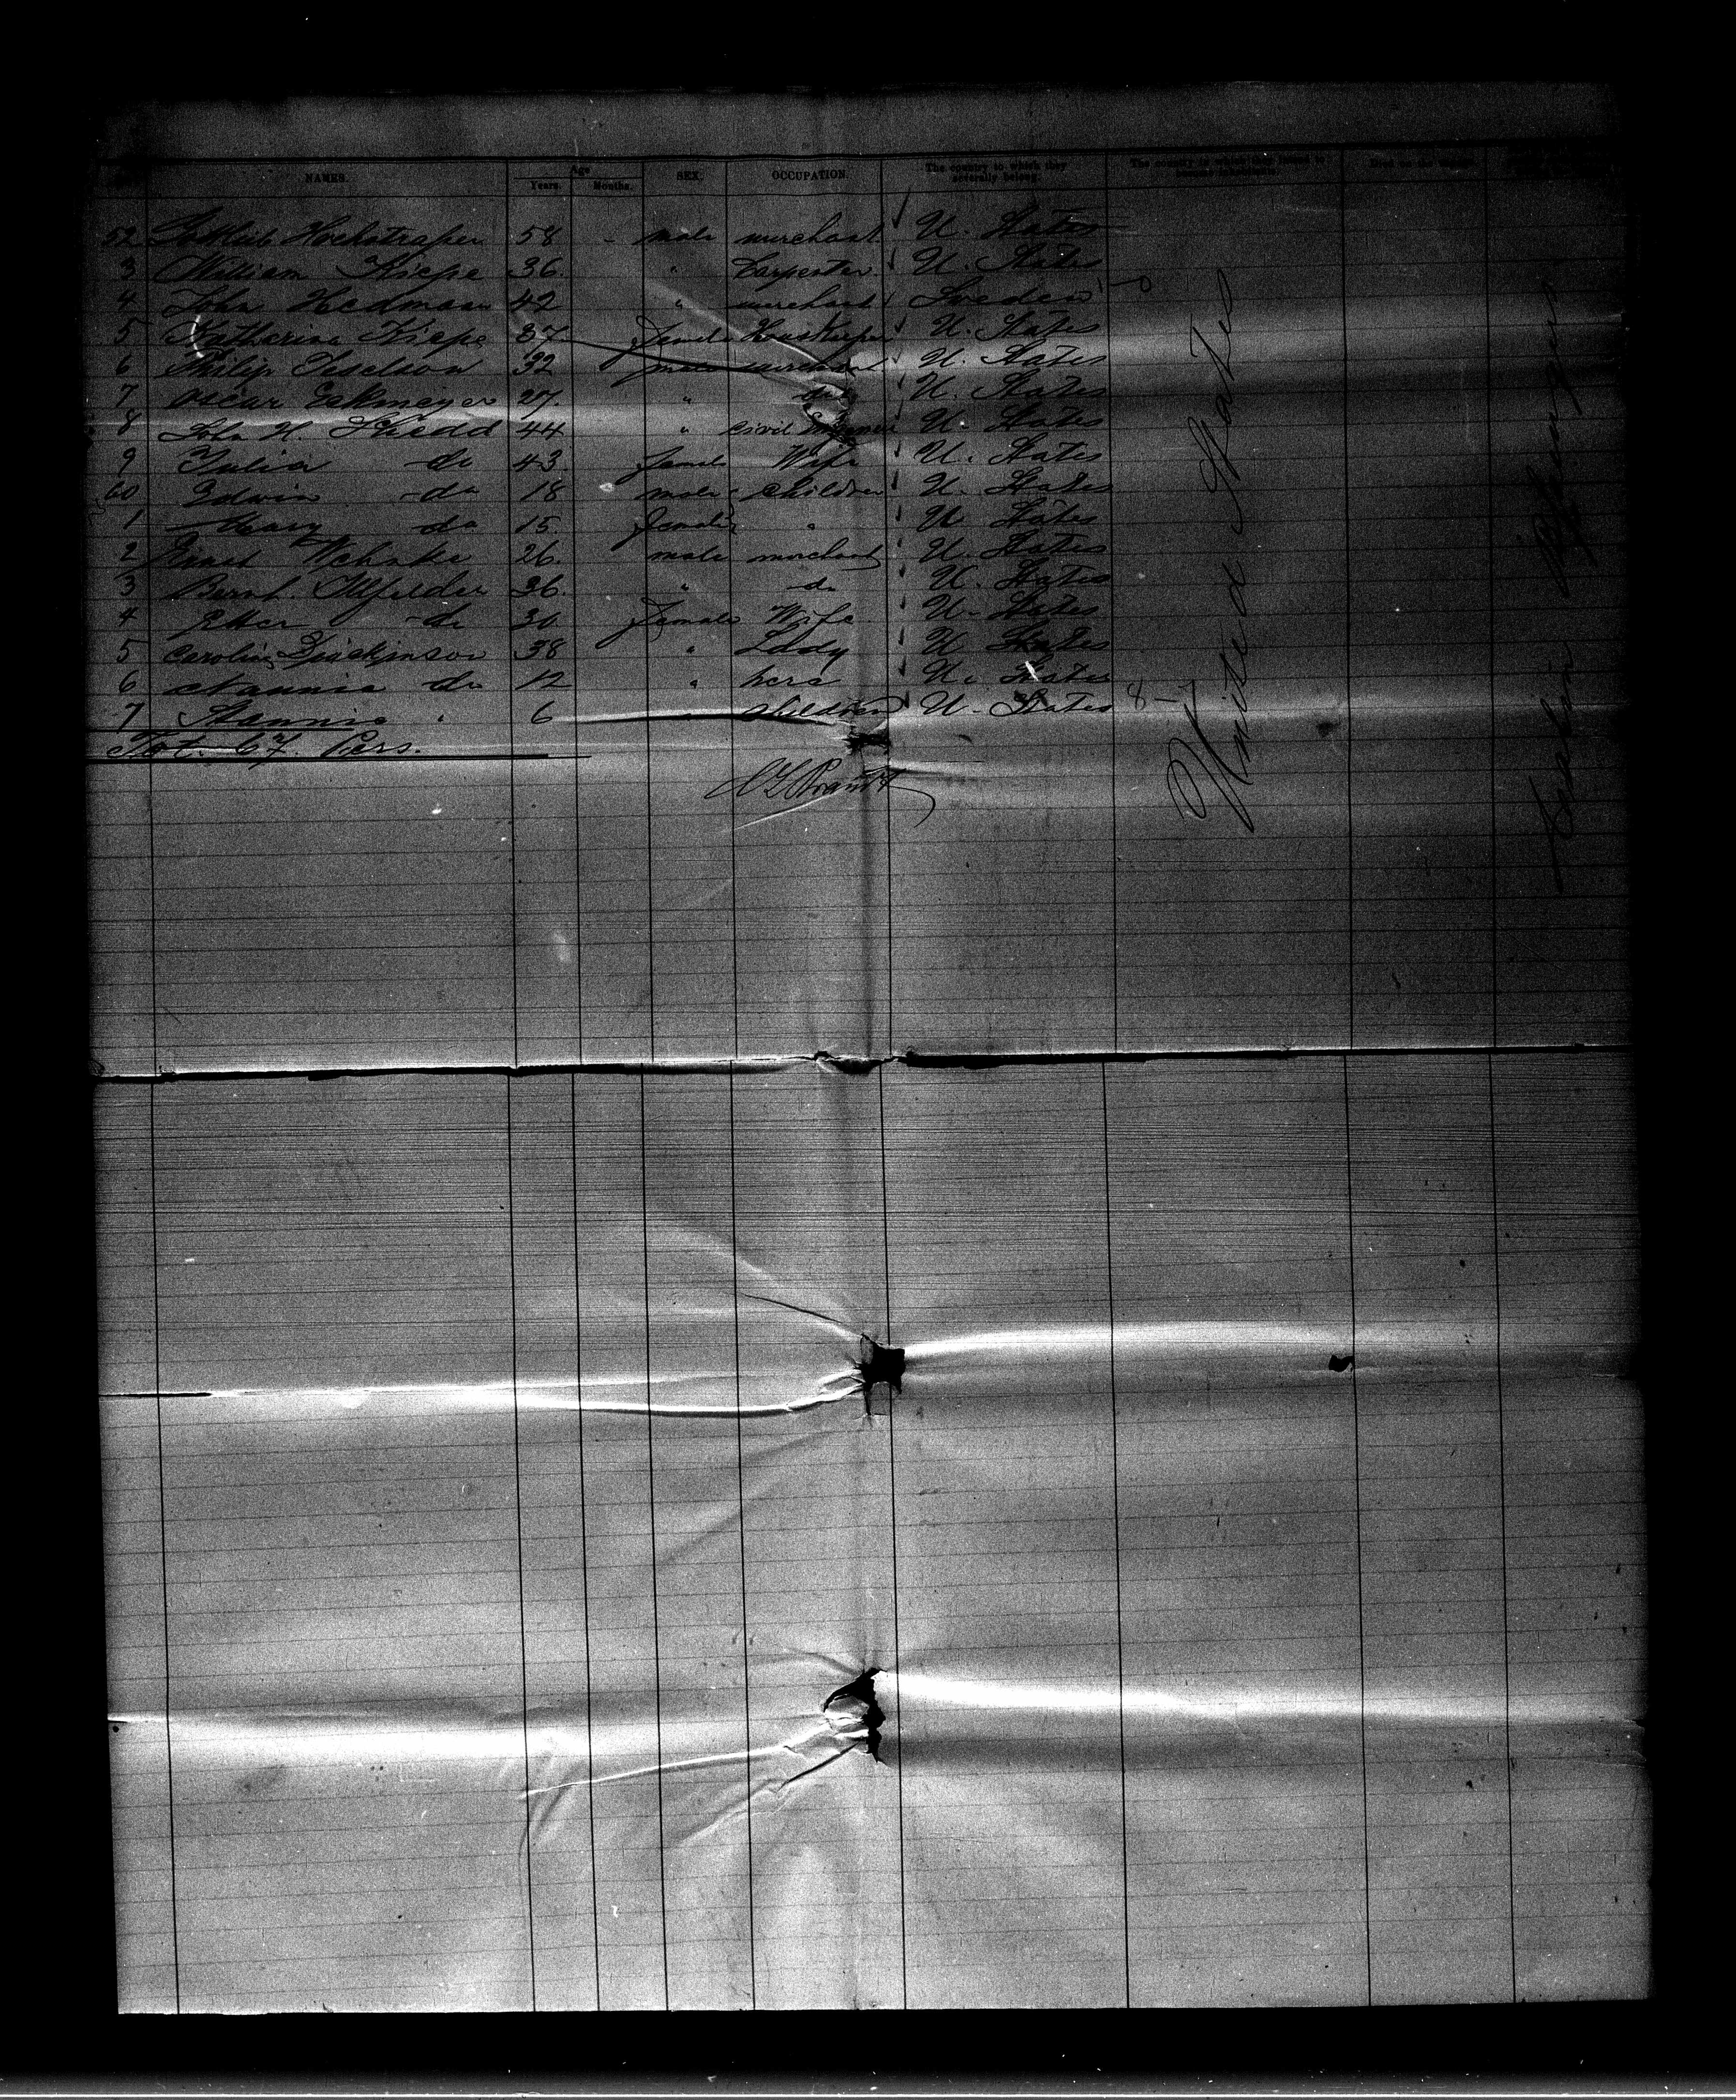 NAMES. Age Years. Months. SEX. OCCUPATION. The country to which they severally belong. The country in which they intend to become inhabitants. Died on the voyage.
52 Gottlieb Hochstrasser 58 - male merchant U. States
3 William Kiepe 36. " Carpenter U. States
4 John Hedman 42 " merchant Sweden
5 Katherine Kiepe 37 female U. States
6 Philip 32 male merchant U. States
7 Oscar 27. " do U. States
8 John H. 44 " civil U. States
9 Julia do 43. female Wife U. States
60 Edwin do 18 male children U. States
1 Mary do 15. female " U. States
2 Ernst Wehnke 26. male merchant U. States
3 Bernh. Ilfelder 36. " do U. States
4 do 30 female Wife U. States
5 Carolin Dickinson 38 " Lady U States
6 Nannie do 12 " hers U. States
7 " 6 " children U. States 8-
Tot. 67. Pers.
United States